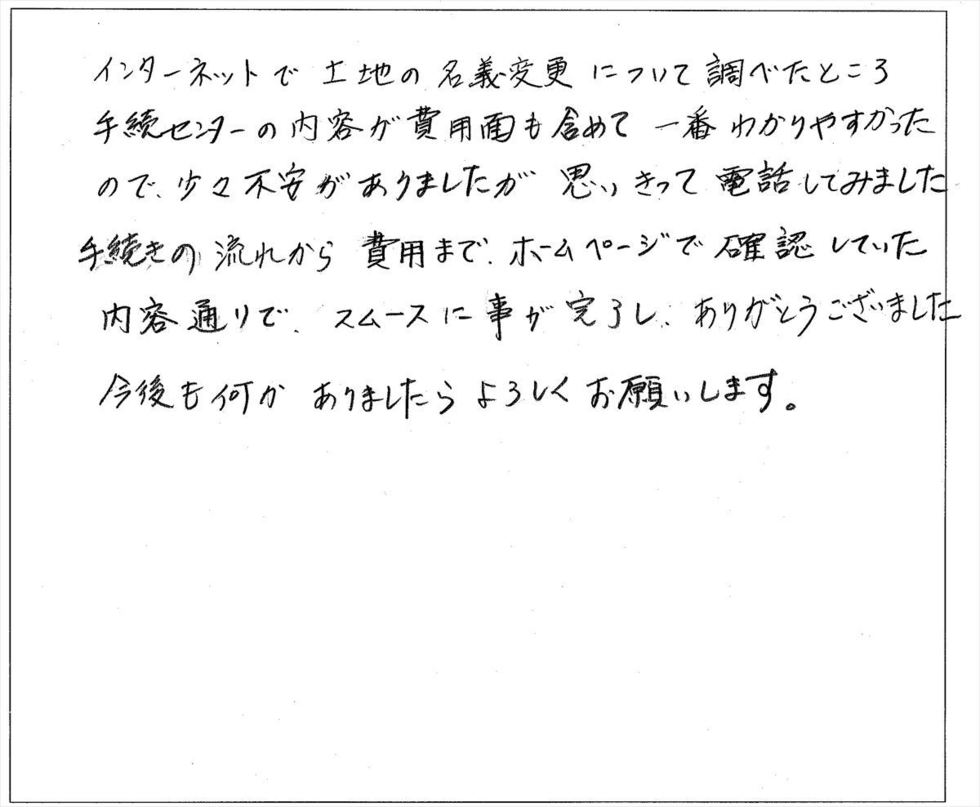 インターネットで土地の名義変更について調べたところ
手続センターの内容が費用面も含めて一番わかりやすかった
ので、少々不安がありましたが思いきって電話してみました
手続きの流れから費用まで、ホームページで確認していた
内容通りで、スムースに事が完了し、ありがとうございました
今後も何かありましたらよろしくお願いします。